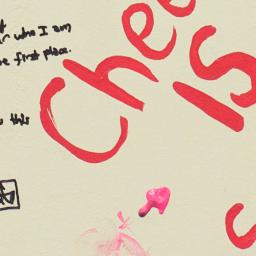 who I am
first place.
this
Chee
IS